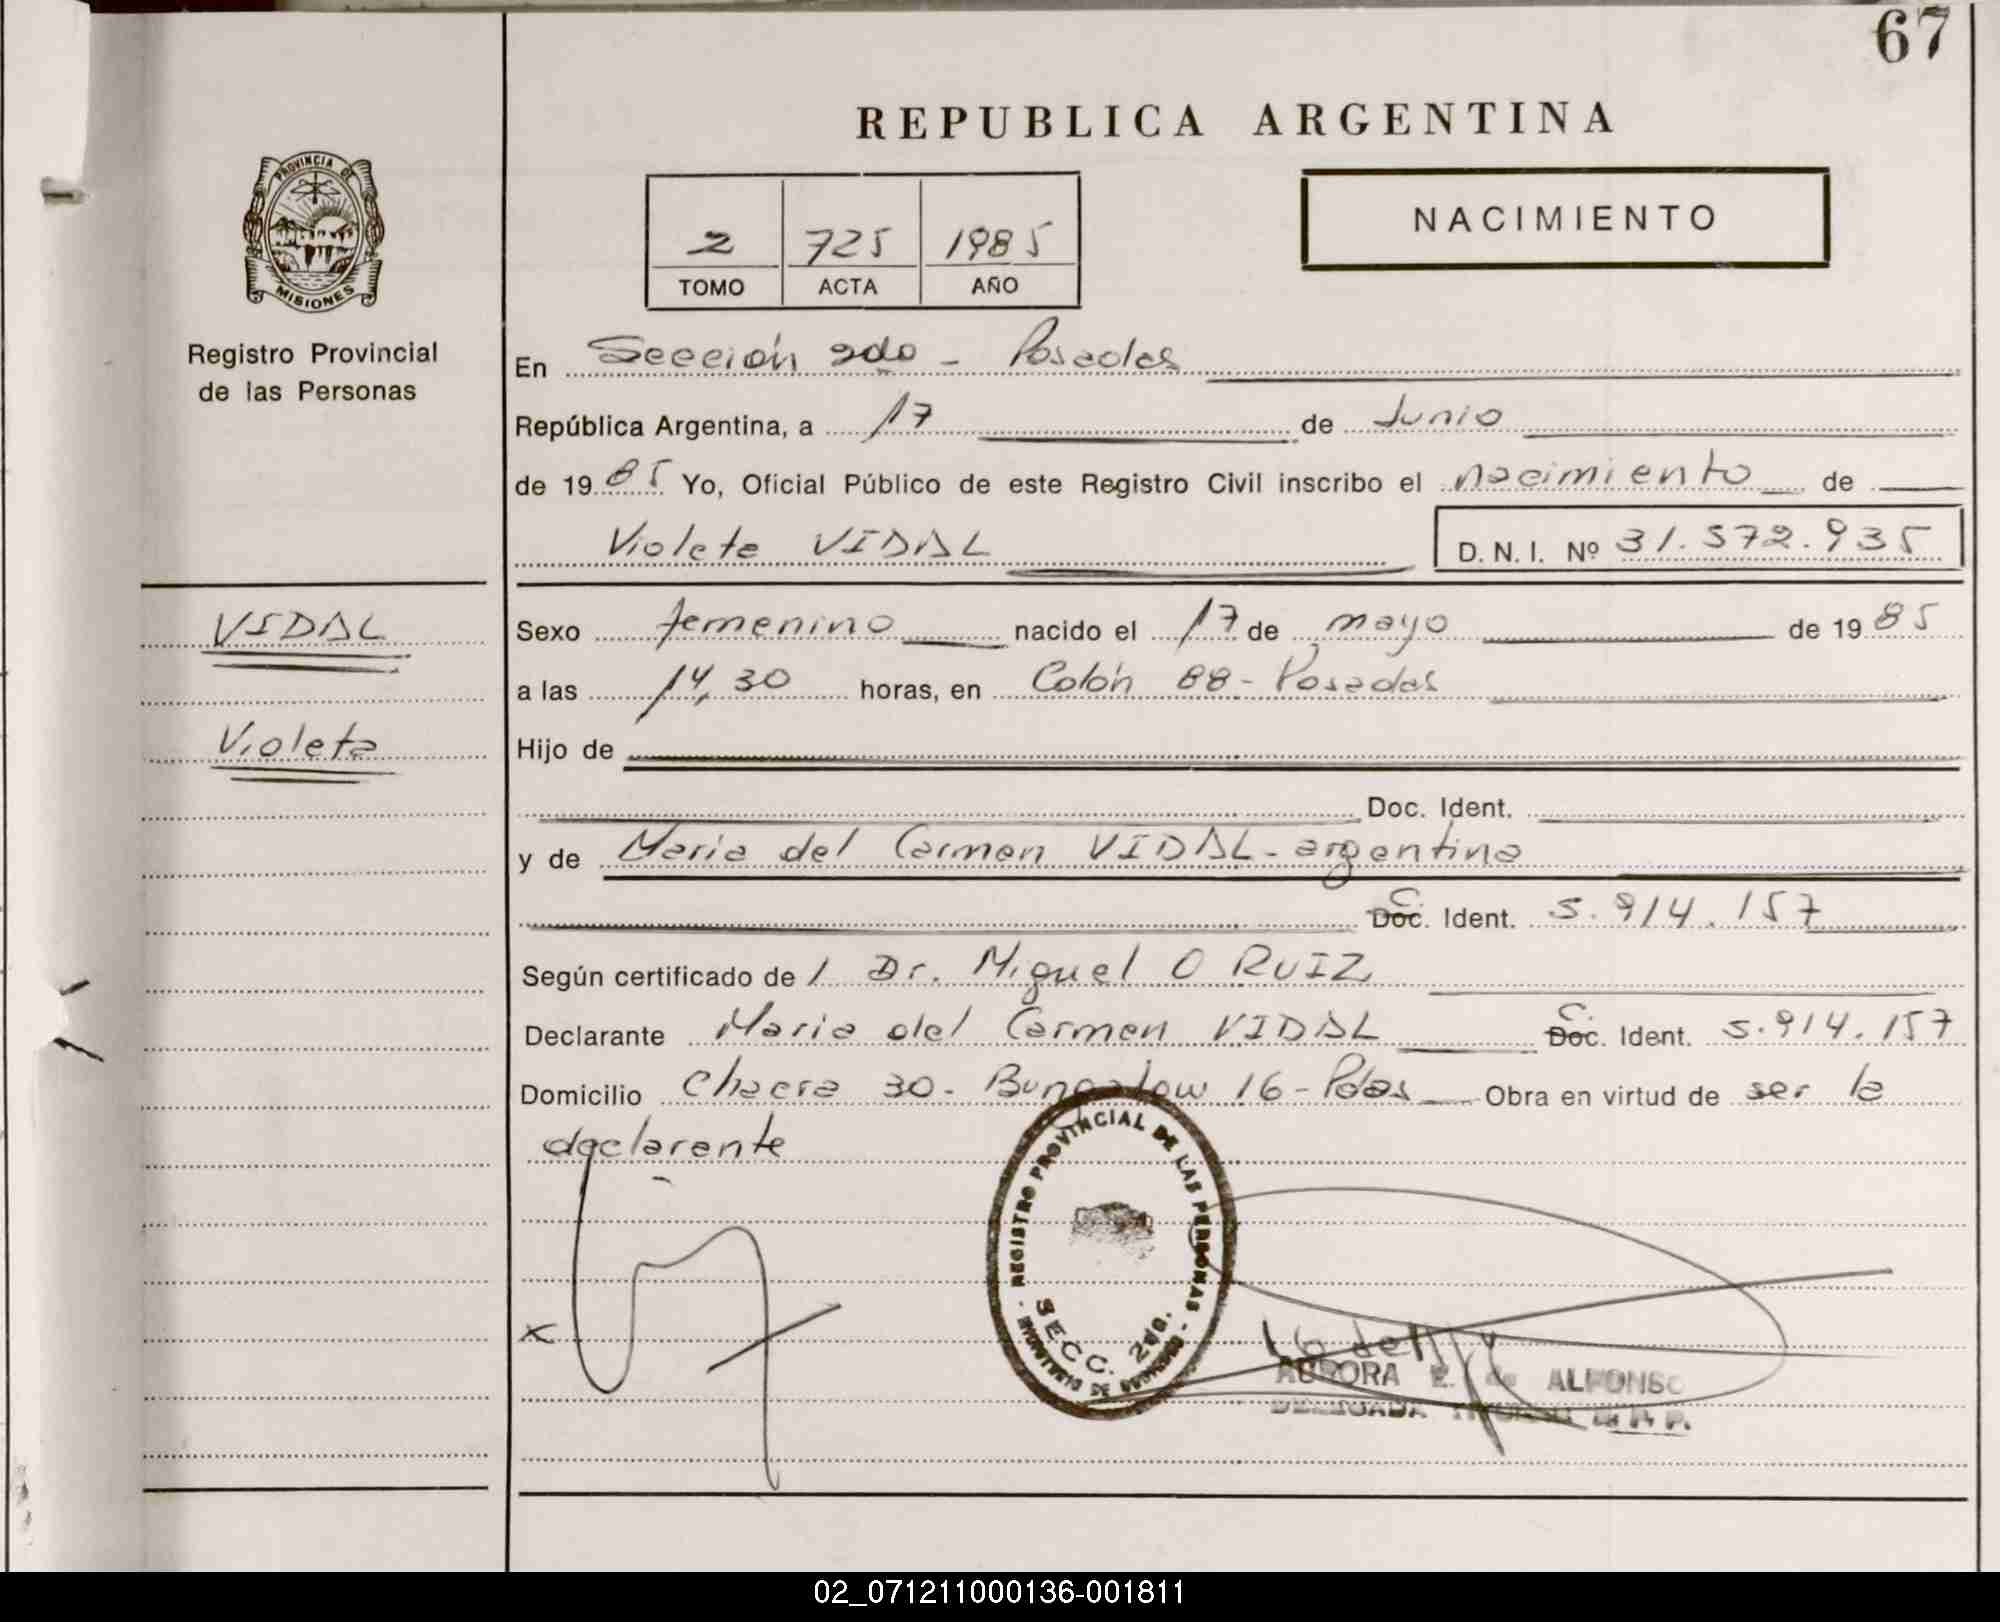 67
REPUBLICA ARGENTINA
PROVINCIA DE
MISIONES
Registro Provincial
de las Personas
2 725 1985
TOMO ACTA AÑO
NACIMIENTO
En Sección 2do - Posadas
República Argentina, a 17 de Junio
de 1985 Yo, Oficial Público de este Registro Civil inscribo el nacimiento de
Violeta VIDAL D. N. I. Nº 31.572.935
VIDAL
Violeta
Sexo femenino nacido el 17 de mayo de 1985
a las 14,30 horas, en Colón 88 - Posadas
Hijo de
Doc. Ident.
y de Maria del Carmen VIDAL - argentina
C. Ident. 5.914.157
Según certificado de l Dr. Miguel O RUIZ
Declarante Maria del Carmen VIDAL C. Ident. 5.914.157
Domicilio Chacra 30 - Bungalow 16 - Pdas Obra en virtud de ser la
declarante
REGISTRO PROVINCIAL DE LAS PERSONAS
SECC. 2da.
x
AURORA E. de ALFONSO
02_071211000136-001811